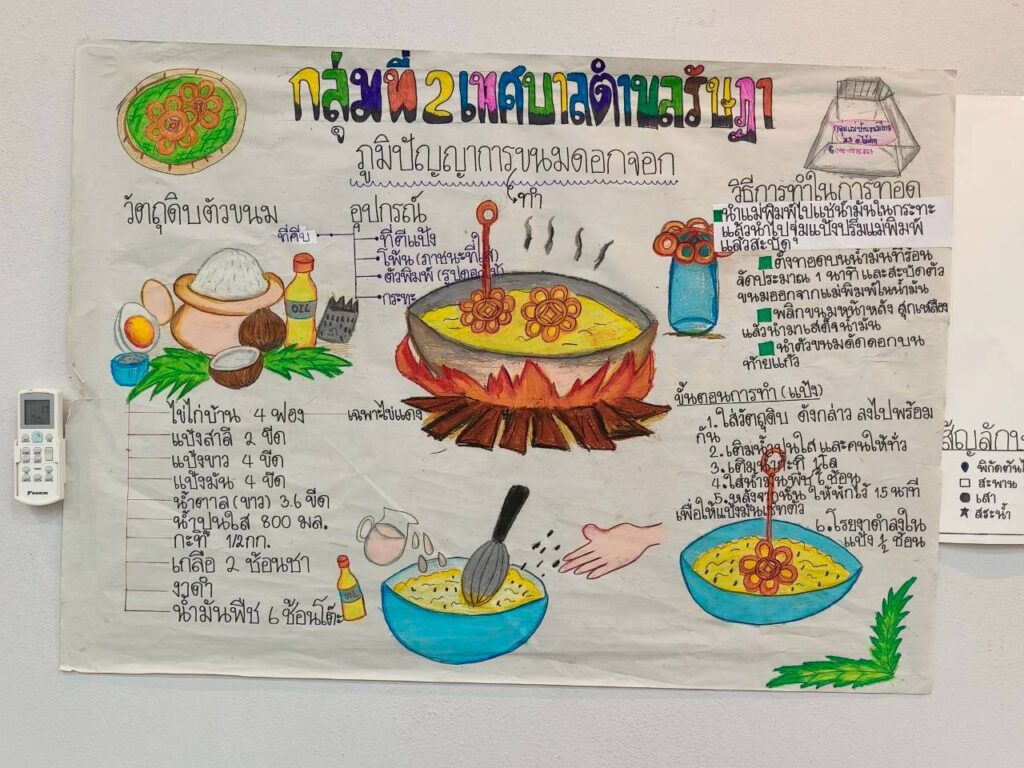 กลุ่มที่ 2 เทศบาลตำบลรัษฎา
ภูมิปัญญาการขนมดอกจอก
ทำ
วัตถุดิบตัวขนม
อุปกรณ์
ที่คีบ
ที่ตีแป้ง
โฟ้น (ภาชนะที่ใส่)
ตัวพิมพ์ (รูปดอกไม้
กระทะ
OIL
ไข่ไก่บ้าน 4 ฟอง เฉพาะไข่แดง
แป้งสาลี 2 ขีด
แป้งขาว 4 ขีด
แป้งมัน 4 ขีด
น้ำตาล (ขาว) 3.6 ขีด
น้ำปูนใส 800 มล.
กะทิ 1/2 กก.
เกลือ 2 ช้อนชา
งาดำ
น้ำมันพืช 6 ช้อนโต๊ะ
OIL
วิธีการทำในการทอด
นำแม่พิมพ์ไปแช่น้ำมันในกระทะ
แล้วนำไปจุ่มแป้งปริ่มแม่พิมพ์
แล้วสะบัด
ตั้งทอดบนน้ำมันที่ร้อน
จัดประมาณ 1 นาที และสะบัดตัว
ขนมออกจากแม่พิมพ์ในน้ำมัน
พลิกขนมหน้าหลัง สุกเหลือง
แล้วนำมาเสด็จน้ำมัน
นำตัวขนมดัดดอกบน
ท้ายแก้ว
ขั้นตอนการทำ (แป้ง)
1. ใส่วัตถุดิบ ดังกล่าว ลงไปพร้อม
กัน
2. เติมน้ำปูนใส และคนให้ทั่ว
3. เติมน้ำกะทิ 1 โล
4. ใส่น้ำมันพืช 6 ช้อน
5. หลังจากนั้น ให้พักไว้ 15 นาที
เพื่อให้แป้งมันเซ็ทตัว
6. โรยงาดำลงใน
แป้ง 1/2 ช้อน
DAIKIN
สัญลักษ
พิกัดต้นไ
สะพาน
เสา
สระน้ำ